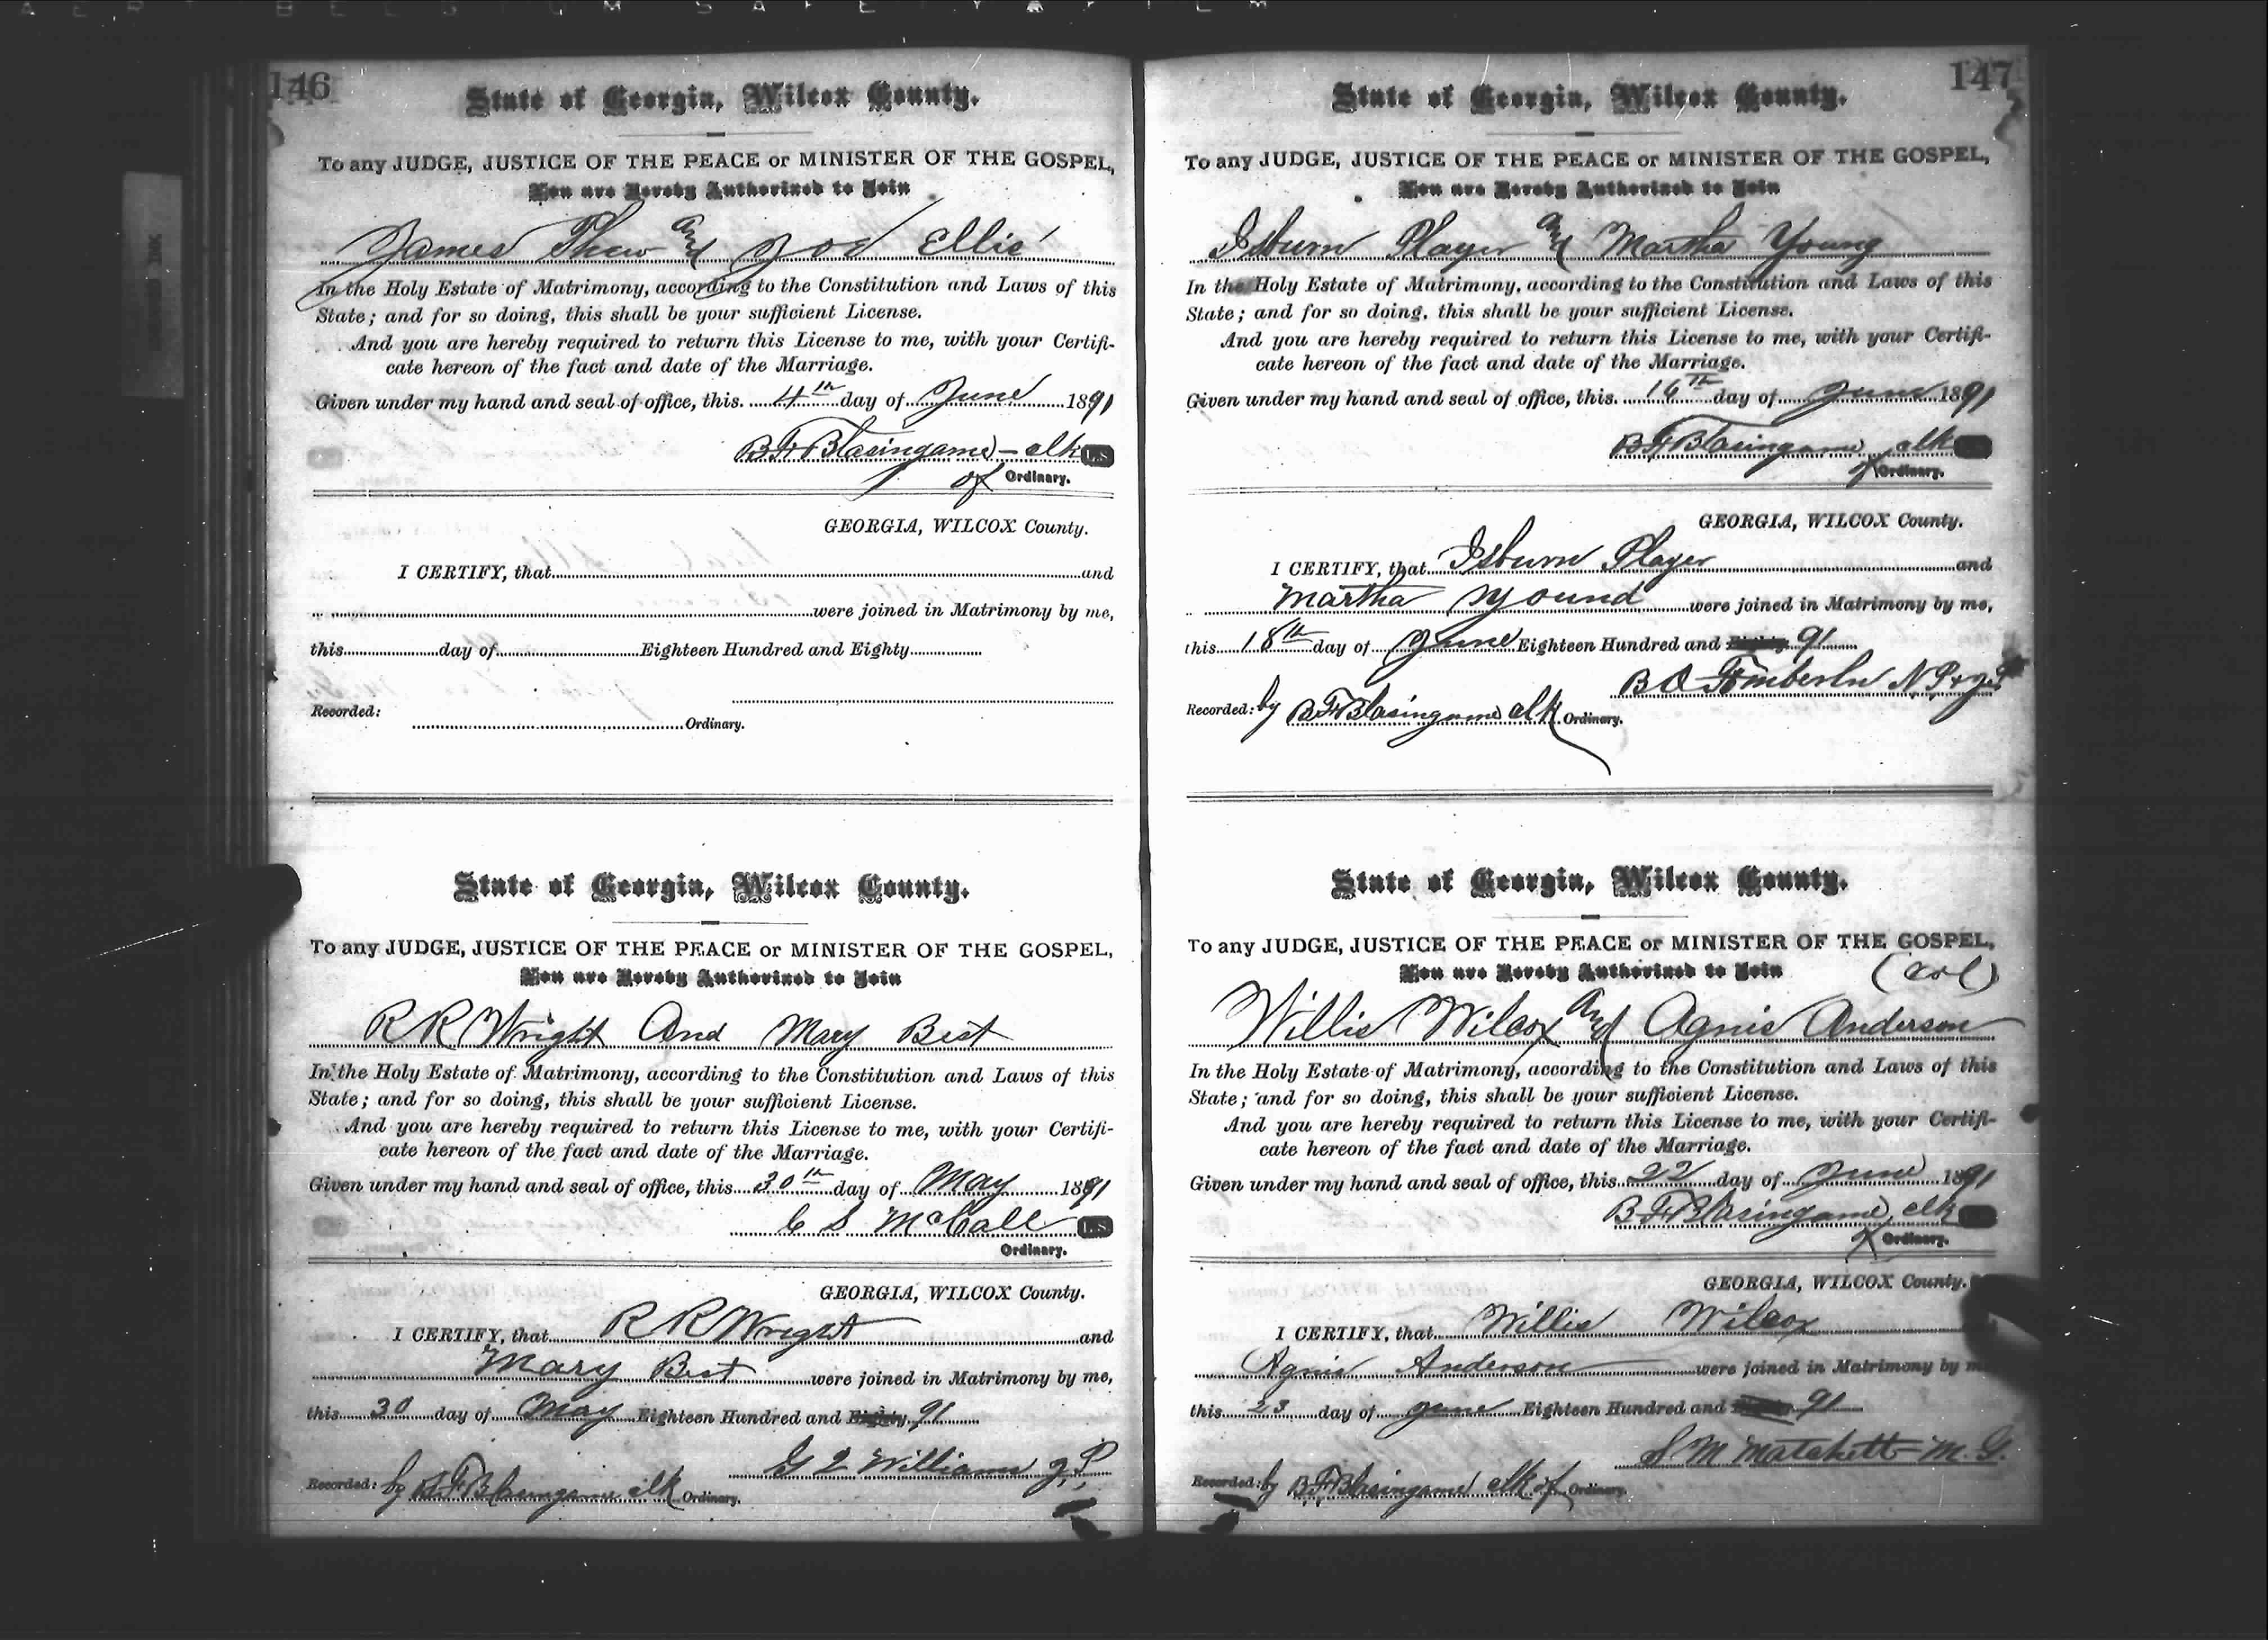 146
State of Georgia, Wilcox County.
To any JUDGE, JUSTICE OF THE PEACE or MINISTER OF THE GOSPEL,
You are Hereby Authorized to Join
James and Ellis
In the Holy Estate of Matrimony, according to the Constitution and Laws of this
State; and for so doing, this shall be your sufficient License.
And you are hereby required to return this License to me, with your Certifi-
cate hereon of the fact and date of the Marriage.
Given under my hand and seal of office, this 4th day of June 1891
B F Blasingame - clk L.S
of Ordinary.
GEORGIA, WILCOX County.
I CERTIFY, that and
were joined in Matrimony by me,
this day of Eighteen Hundred and Eighty
Recorded:
Ordinary.
State of Georgia, Wilcox County.
To any JUDGE, JUSTICE OF THE PEACE or MINISTER OF THE GOSPEL,
You are Hereby Authorized to Join
R R Wright And Mary Best
In the Holy Estate of Matrimony, according to the Constitution and Laws of this
State; and for so doing, this shall be your sufficient License.
And you are hereby required to return this License to me, with your Certifi-
cate hereon of the fact and date of the Marriage.
Given under my hand and seal of office, this 30th day of May 1891
C S McCall L.S
Ordinary.
GEORGIA, WILCOX County.
I CERTIFY, that R R Wright and
Mary Best were joined in Matrimony by me,
this 30 day of May Eighteen Hundred and Eighty 91
Williams J.P.
Recorded: by B F Blasingame clk Ordinary.
147
State of Georgia, Wilcox County.
To any JUDGE, JUSTICE OF THE PEACE or MINISTER OF THE GOSPEL,
You are Hereby Authorized to Join
Isburn Player and Martha Young
In the Holy Estate of Matrimony, according to the Constitution and Laws of this
State; and for so doing, this shall be your sufficient License.
And you are hereby required to return this License to me, with your Certifi-
cate hereon of the fact and date of the Marriage.
Given under my hand and seal of office, this 16th day of June 1891
B F Blasingame clk
of Ordinary.
GEORGIA, WILCOX County.
I CERTIFY, that Isburn Player and
Martha Yound were joined in Matrimony by me,
this 18th day of June Eighteen Hundred and Eighty 91
B O N.P.
Recorded: by B F Blasingame clk Ordinary.
State of Georgia, Wilcox County.
To any JUDGE, JUSTICE OF THE PEACE or MINISTER OF THE GOSPEL,
You are Hereby Authorized to Join (col)
Willis Wilcox and Agnis Anderson
In the Holy Estate of Matrimony, according to the Constitution and Laws of this
State; and for so doing, this shall be your sufficient License.
And you are hereby required to return this License to me, with your Certifi-
cate hereon of the fact and date of the Marriage.
Given under my hand and seal of office, this 22 day of June 1891
B F Blasingame, clk
of Ordinary.
GEORGIA, WILCOX County.
I CERTIFY, that Willis Wilcox
Agnis Anderson were joined in Matrimony by
this 23 day of June Eighteen Hundred and 91
S M Matchett M.G.
Recorded: by B F Blasingame clk of Ordinary.